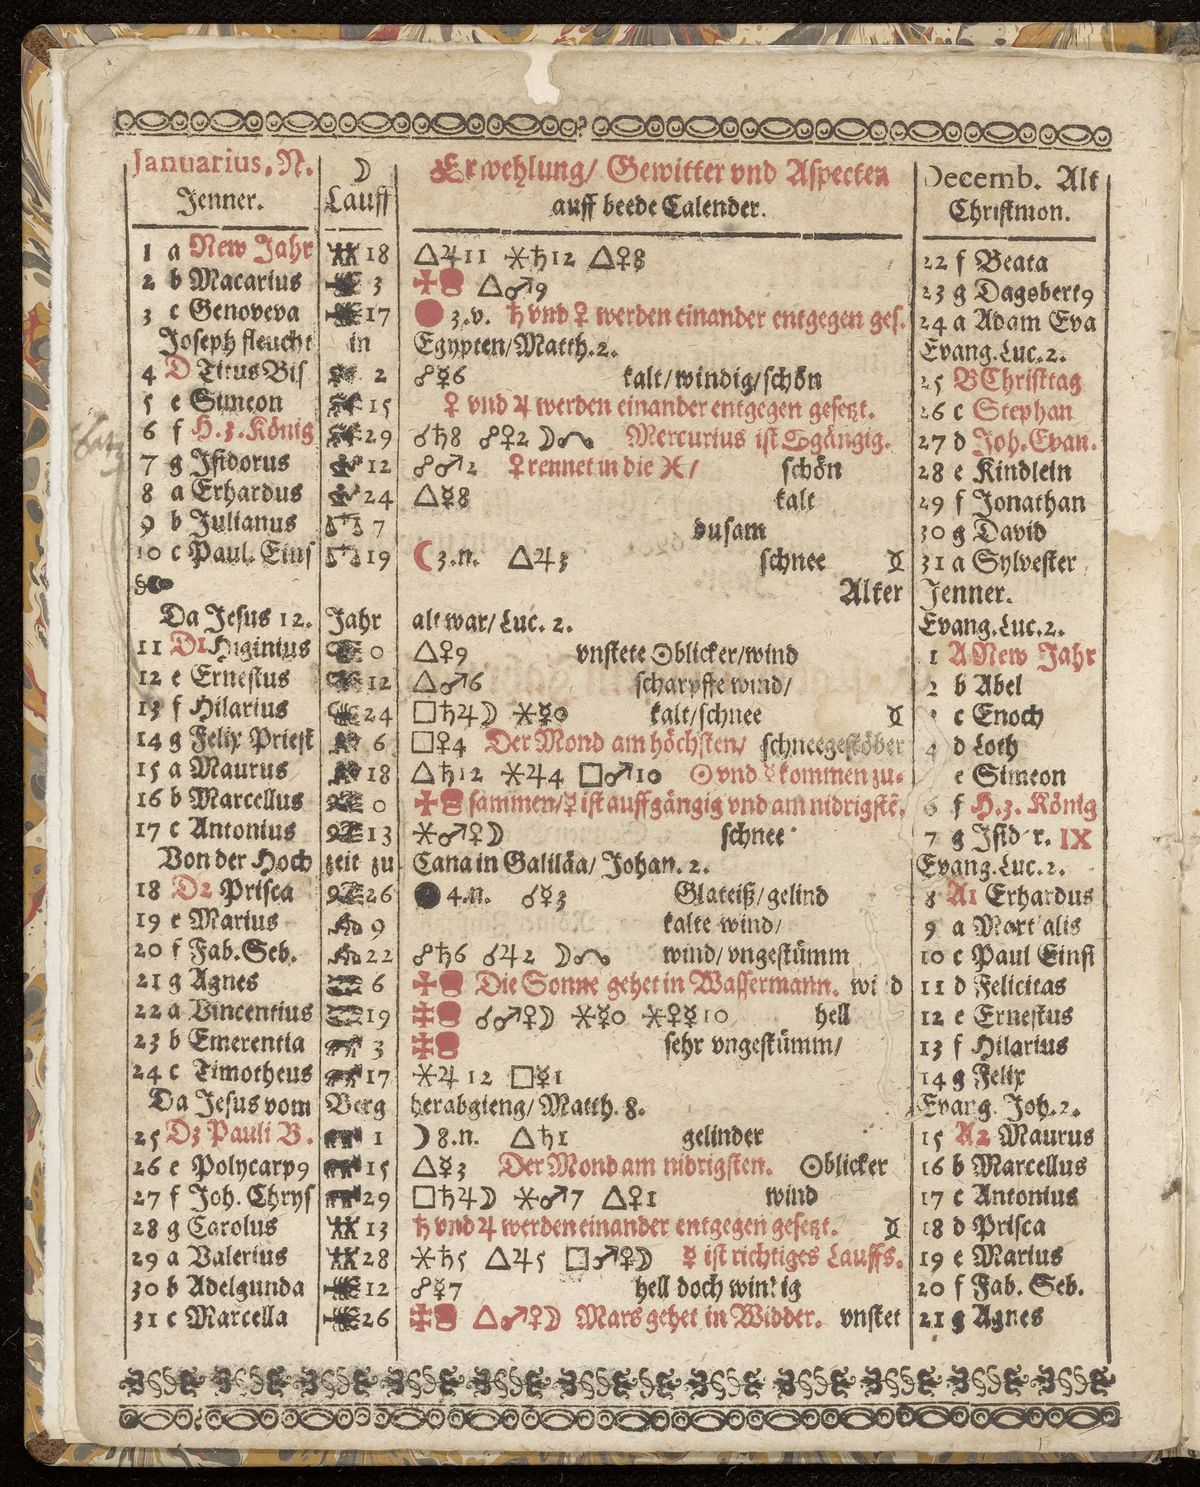 Januarius. N. ☽ Erwehlung/ Gewitter vnd Aspecten Decemb. Alt
Jenner. Lauff auff beede Calender. Christmon.
1 a New Jahr 18 △♃11 ⚹♄12 △♀8 22 f Beata
2 b Macarius 3 △♂9 23 g Dagobert9
3 c Genoveva 17 3.v. ♄ vnd ♀ werden einander entgegen ges. 24 a Adam Eva
Joseph fleucht in Egypten/Matth.2. Evang.Luc.2.
4 D Titus Bis 2 ☍☿6 kalt/windig/schön 25 B Christtag
5 e Simeon 15 ♀ vnd ♃ werden einander entgegen gesetzt. 26 c Stephan
6 f H.3.König 29 ☌♄8 ☍♀2 ☽☊ Mercurius ist gängig. 27 d Joh.Evan.
7 g Isidorus 12 ☍♂2 ♀ rennet in die ♓/ schön 28 e Kindlein
8 a Erhardus 24 △☿8 kalt 29 f Jonathan
9 b Julianus 7 dusam 30 g David
10 c Paul. Eins 19 ☾3.n. △♃3 schnee 31 a Sylvester
Alter Jenner.
Da Jesus 12. Jahr alt war/ Luc. 2. Evang.Luc.2.
11 D1 Higinius 0 △♀9 vnstete ☉blicker/wind 1 A New Jahr
12 e Ernestus 12 △♂6 scharpffe wind/ 2 b Abel
13 f Hilarius 24 □♄♃☽ ⚹☿0 kalt/schnee c Enoch
14 g Felix Priest 6 □♀4 Der Mond am höchsten/ schneegestöber 4 d Loth
15 a Maurus 18 △♄12 ⚹♃4 □♂10 ☉ vnd ☿ kommen zu- e Simeon
16 b Marcellus 0 sammen/☿ ist auffgängig vnd am nidrigstē. 6 f H.3. König
17 c Antonius 13 ⚹♂♀☽ schnee 7 g Isid r. IX
Von der Hoch zeit zu Cana in Galiläa/ Johan. 2. Evang.Luc.2.
18 D2 Prisca 26 4.n. ☌☿3 Glateiß/gelind 8 A1 Erhardus
19 e Marius 9 kalte wind/ 9 a Mart alis
20 f Fab.Seb. 22 ☍♄6 ☌♃2 ☽☊ wind/vngestümm 10 c Paul Einsi
21 g Agnes 6 Die Sonne gehet in Wassermann. wi d 11 d Felicitas
22 a Vincentius 19 ☌♂♀☽ ⚹☿0 ⚹♀☿10 hell 12 e Ernestus
23 b Emerentia 3 sehr vngestümm/ 13 f Hilarius
24 c Timotheus 17 ⚹♃12 □☿1 14 g Felix
Da Jesus vom Berg herabgieng/ Matth. 8. Evang. Joh.2.
25 D3 Pauli B. 1 ☽8.n. △♄1 gelinder 15 A2 Maurus
26 e Polycarp9 15 △☿3 Der Mond am nidrigsten. ☉blicker 16 b Marcellus
27 f Joh. Chrys 29 □♄♃☽ ⚹♂7 △♀1 wind 17 c Antonius
28 g Carolus 13 ♄ vnd ♃ werden einander entgegen gesetzt. 18 d Prisca
29 a Valerius 28 ⚹♄5 △♃5 □♂♀☽ ☿ ist richtiges Lauffs. 19 e Marius
30 b Adelgunda 12 ☍☿7 hell doch win ig 20 f Fab. Seb.
31 c Marcella 26 △♂♀☽ Mars gehet in Widder. vnstet 21 g Agnes